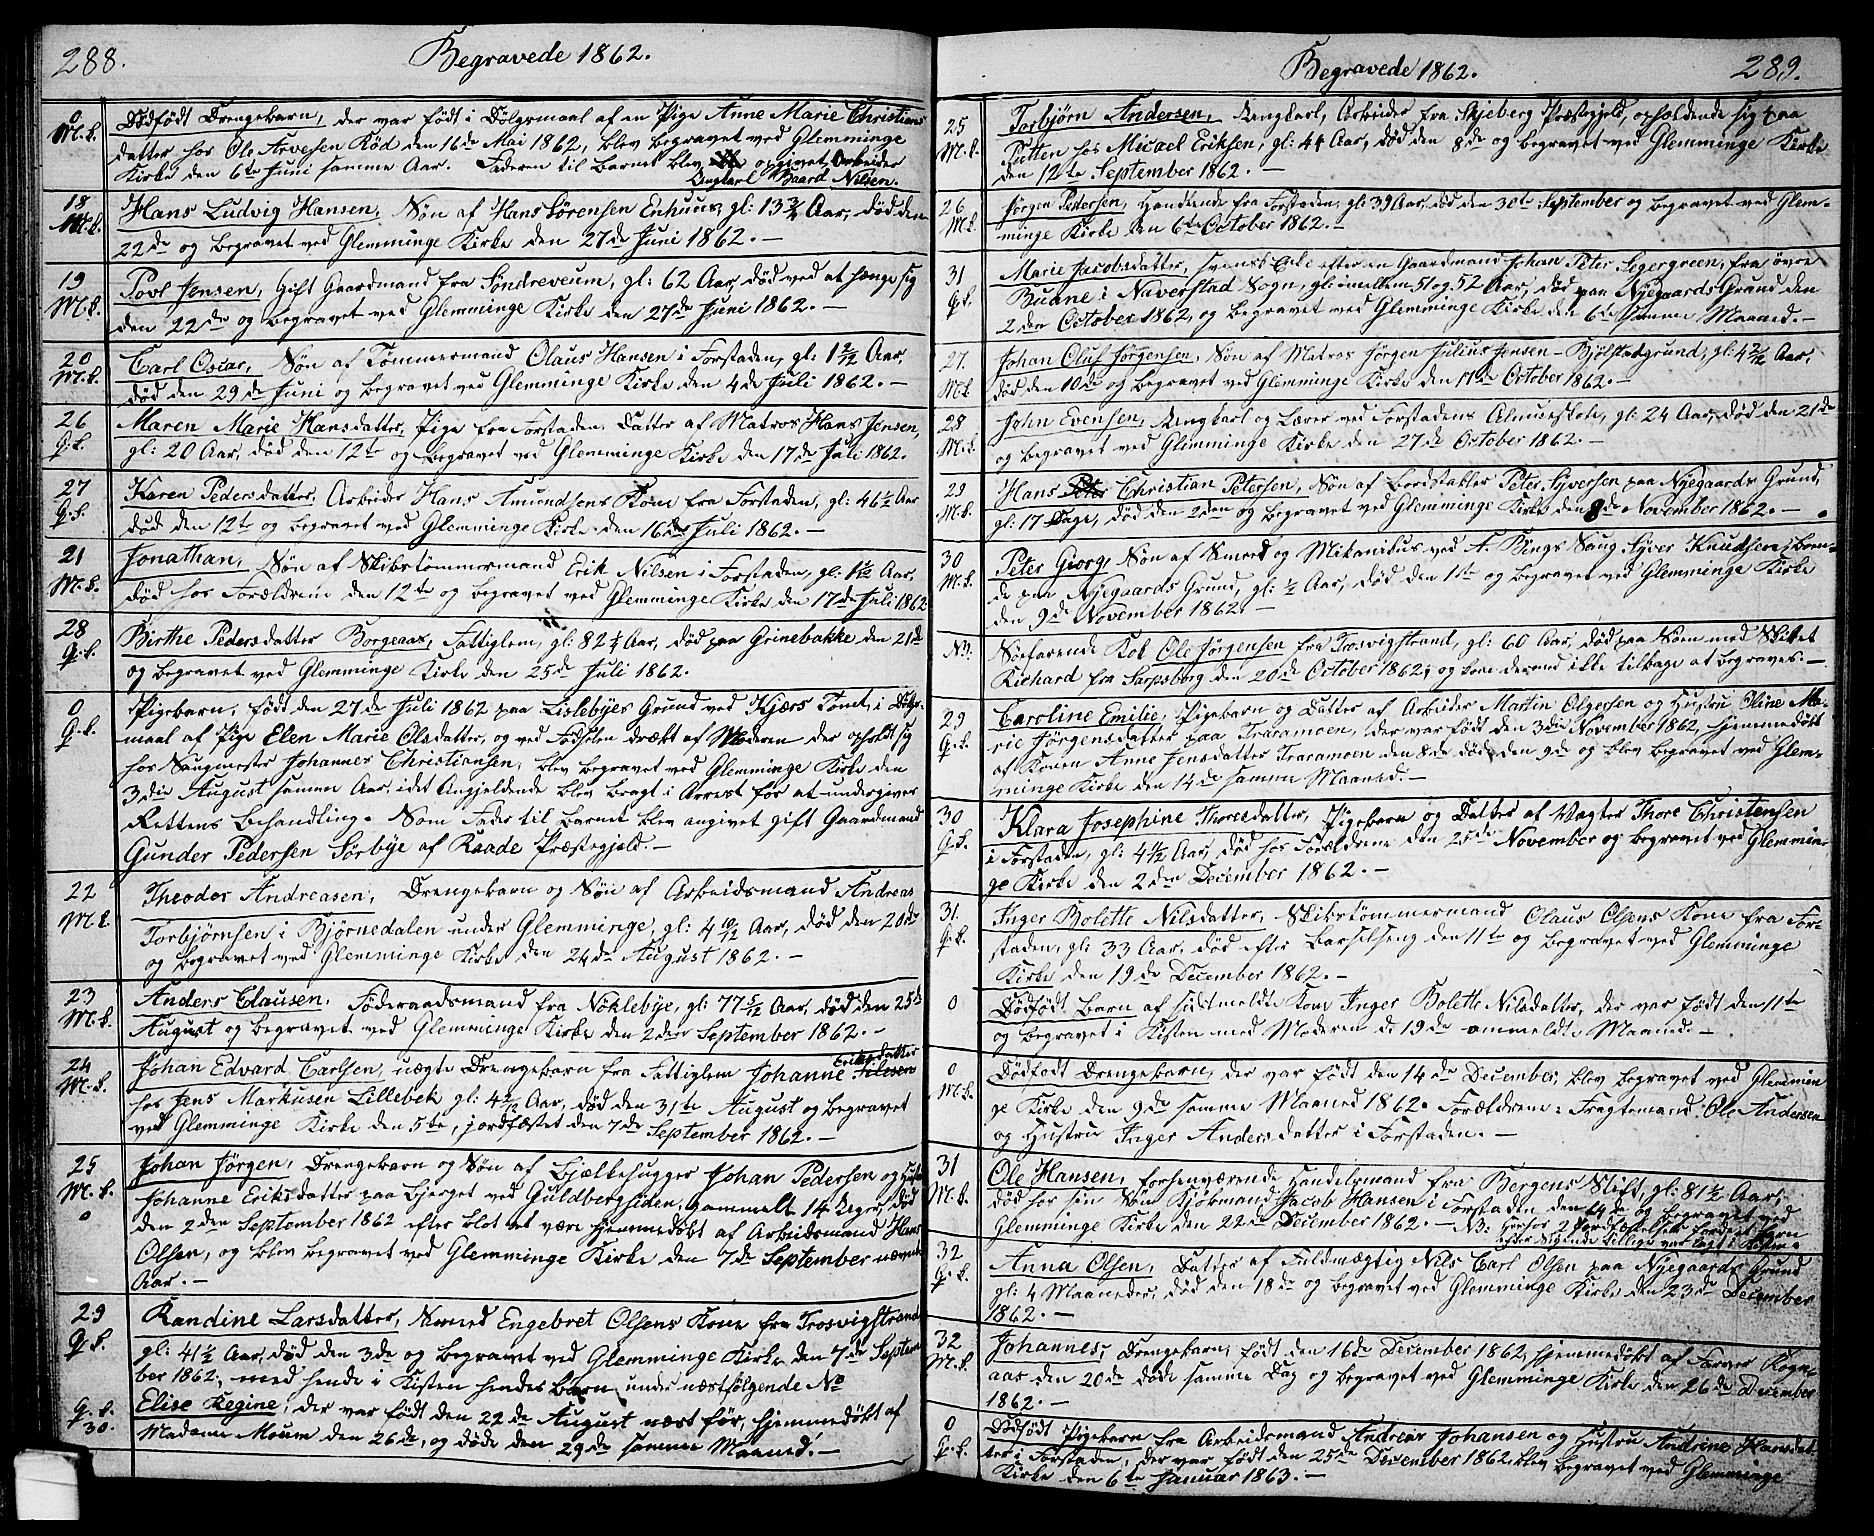 288.
Begravede 1862.
0 M.k. Dødfødt Drengebarn, der var født i Dølgsmaal af en Pige Anne Marie Christians
datter hos Ole Arvesen Röd den 16de Mai 1862, blev begravet ved Glemminge
Kirke den 6te Juni samme Aar. Faderen til Barnet blev opgivet Arbeider
Ungkarl Baard Nilsen.
18 M.k. Hans Ludvig Hansen, Søn af Hans Sørensen Enhuus, gl: 13 3/4 Aar, død den
22de og begravet ved Glemminge Kirke den 27de Juni 1862. —
19 M.k. Povl Jensen, Gift Gaardmand fra Søndreveum, gl: 62 Aar, død ved at hænge sig
den 22de og begravet ved Glemminge Kirke den 27de Juni 1862. —
20 M.k. Carl Oscar, Søn af Tømmermand Olaus Hansen i Forstaden, gl: 1 2/12 Aar,
død den 29de Juni og begravet ved Glemminge Kirke den 4de Juli 1862. —
26 Q.k. Maren Marie Hansdatter, Pige fra Forstaden. Datter af Matros Hans Jensen,
gl: 20 Aar, død den 12te og begravet ved Glemminge Kirke den 17de Juli 1862.
27 Q.k. Karen Pedersdatter, Arbeider Hans Amundsens Kone fra Forstaden, gl: 46 1/2 Aar
død den 12te og begravet ved Glemminge Kirke den 16de Juli 1862. —
21 M.k. Jonathan, Søn af Skibstømmermand Erik Nilsen i Forstaden, gl: 1 1/2 Aar,
død hos Forældrene den 12te og begravet ved Glemminge Kirke den 17de Juli 1862
28 Q.k. Birthe Pedersdatter Borgeaas, Fattiglem, gl: 82 1/2 Aar, død paa Grinebakke den 21de
og begravet ved Glemminge Kirke den 25de Juli 1862.
0 Q.k. Pigebarn, født den 27de Juli 1862 paa Lislebyes Grund ved Kjærs Tomt, i Dølgs-
maal af Pige Elen Marie Olsdatter, og ved Fødselen dræbt af Moderen der opholdt sig
hos Saugmester Johannes Christiansen, blev begravet ved Glemminge Kirke den
3die August samme Aar, idet Angjeldende blev bragt i Arrest for at undergives
Rettens Behandling. Som Fader til Barnet blev angivet gift Gaardmand
Gunder Pedersen Sørbye af Raade Præstegjeld. —
22 M.k. Theodor Andreasen, Drengebarn og Søn af Arbeidsmand Andreas
Torbjørnsen i Bjørnedalen under Glemminge, gl: 4 10/12 Aar, død den 20de
og begravet ved Glemminge Kirke den 24de August 1862. —
23 M.k. Anders Clausen, Føderaadsmand fra Nøklebye, gl: 77 5/12 Aar, død den 25de
August og begravet ved Glemminge Kirke den 2den September 1862. —
24 M.k. Johan Edvard Carlsen, uægte Drengebarn fra Fattiglem Johanne Eriksdatter
hos Jens Markusen Lillebek gl: 4 2/12 Aar, død den 31te August og begravet
ved Glemminge Kirke den 5te, jordfæstet den 7de September 1862. —
25 M.k. Johan Jørgen, Drengebarn og Søn af Bjælkehugger Johan Pedersen og Hustru
Johanne Eriksdatter paa Bjerget ved Guldbergsiden, gammelt 14 Dage, død
den 2den September 1862 efter blot at være hjemmedøbt af Arbeidsmand Hans
Olsen, og blev begravet ved Glemminge Kirke den 7de September nævnte
Aar. —
29 Q.k. Randine Larsdatter, Smed Engebret Olsens Kone fra Trosvigstrand
gl: 41 1/2 Aar, død den 3de og begravet ved Glemminge Kirke den 7de Septem
ber 1862, med hende i Kisten hendes Barn under næstfølgende No
Q.k. 30. Elise Regine, der var født den 22de August næst før, hjemmedøbt af
Madame Moum den 26de, og døde den 29de samme Maaned. —
Begravede 1862.
289.
25 M.k. Torbjørn Andersen, Ungkarl, Arbeider fra Skjeberg Præstegjeld, opholdende sig paa
Putten hos Micael Eriksen, gl: 44 Aar, død den 8de og begravet ved Glemminge Kirke
den 12te September 1862. —
26 M.k. Jørgen Pedersen, Handlende fra Forstaden, gl: 39 Aar, død den 30te September og begravet ved Glem-
minge Kirke den 6te October 1862. —
31 Q.k. Marie Jacobsdatter, svensk Enke efter en Gaardmand Johan Peter Segergreen, fra øvre
Buane i Naverstad Sogn, gl: imellem 51 og 52 Aar, død paa Nyegaards Grund den
2den October 1862, og begravet ved Glemminge Kirke den 6te samme Maaned. —
27. M.k Johan Oluf Jørgensen, Søn af Matros Jørgen Julius Jensen - Bjølstadgrund, gl: 4 2/12 Aar,
død den 10de og begravet ved Glemminge Kirke den 17de October 1862. —
28 M.k. John Evensen, Ungkarl og Lærer ved Forstadens Almueskole, gl: 24 Aar, død den 21de
og begravet ved Glemminge Kirke den 27de October 1862. —
29 M.k. Hans Christian Petersen, Søn af Bordstabler Peter Syversen paa Nyegaards Grund,
gl: 17 Dage, død den 2den og begravet ved Glemminge Kirke den 8de November 1862. —
30 M.k. Peter Georg, Søn af Smed og Mekanikus ved A. Bings Saug, Syver Knudsen, boen-
de paa Nyegaards Grund, gl: 1/2 Aar, død den 1ste og begravet ved Glemminge Kirke
den 9de November 1862. —
NB. Søefarende Kok Ole Jørgensen fra Trosvigstrand, gl: 60 Aar, død paa Søen med Skibet
Richard fra Sarpsborg den 20de October 1862, og kom derved ikke tilbage at begraves. —
29 Q.k. Caroline Emilie, Pigebarn og Datter af Arbeider Martin Olgersen og Hustru Oline Ma-
rie Jørgensdatter paa Traramoen, der var født den 3die November 1862, hjemmedøbt
af Konen Anne Jensdatter Traramoen den 8de døde den 9de og blev begravet ved Glem-
minge Kirke den 14de samme Maaned. —
30 Q.k. Klara Josephine Thoresdatter, Pigebarn og Datter af Vagter Thore Christensen
i Forstaden, gl: 4 1/2 Aar, død hos Forældrene den 25de November og begravet ved Glemmin-
ge Kirke den 2den December 1862. —
31. Q.k. Inger Bolette Nilsdatter, Skibstømmermand Olaus Olsens Kone fra For-
staden, gl: 33 Aar, død efter Barselseng den 11te og begravet ved Glemminge
Kirke den 19de December 1862. —
0 Dødfødt Barn af sidstmeldte Kone Inger Bolette Nilsdatter, der var født den 11te
og begravet i Kisten med Moderen d: 19de ommeldte Maaned. —
0 M.k. Dødfødt Drengebarn, der var født den 14de December, blev begravet ved Glemmin
ge Kirke den 9de samme Maaned 1862. Forældrene: Fragtemand Ole Andersen
og Hustru Inger Andersdatter i Forstaden. —
31 M.k. Ole Hansen, forhenværende Handelsmand fra Bergens Stift, gl: 81 1/2 Aar,
død hos sin Søn Kjøbmand Jacob Hansen i Forstaden den 14de og begravet ved
Glemminge Kirke den 22de December 1862. — NB: Herfor 2 Jordfæstelser fordi et Barn
efter Sigende tillige var lagt i Kisten.
32 Q.k. Anna Olsen, Datter af Fuldmægtig Nils Carl Olsen paa Nyegaards Grund
gl: 4 Maaneder, død den 18de og begravet ved Glemminge Kirke den 23de December
1862. —
32 M.k. Johannes, Drengebarn, født den 16de December 1862, hjemmedøbt af Farver Rogn-
aas den 20de døde samme Dag og begravet ved Glemminge Kirke den 26de December
1862. —
0 Q.k. Dødfødt Pigebarn fra Arbeidsmand Andreas Johansen og Hustru Andrine Hansdat-
ter i Forstaden, der var født den 25de December 1862, blev begravet ved Glemminge
Kirke den 6te Januar 1863. —